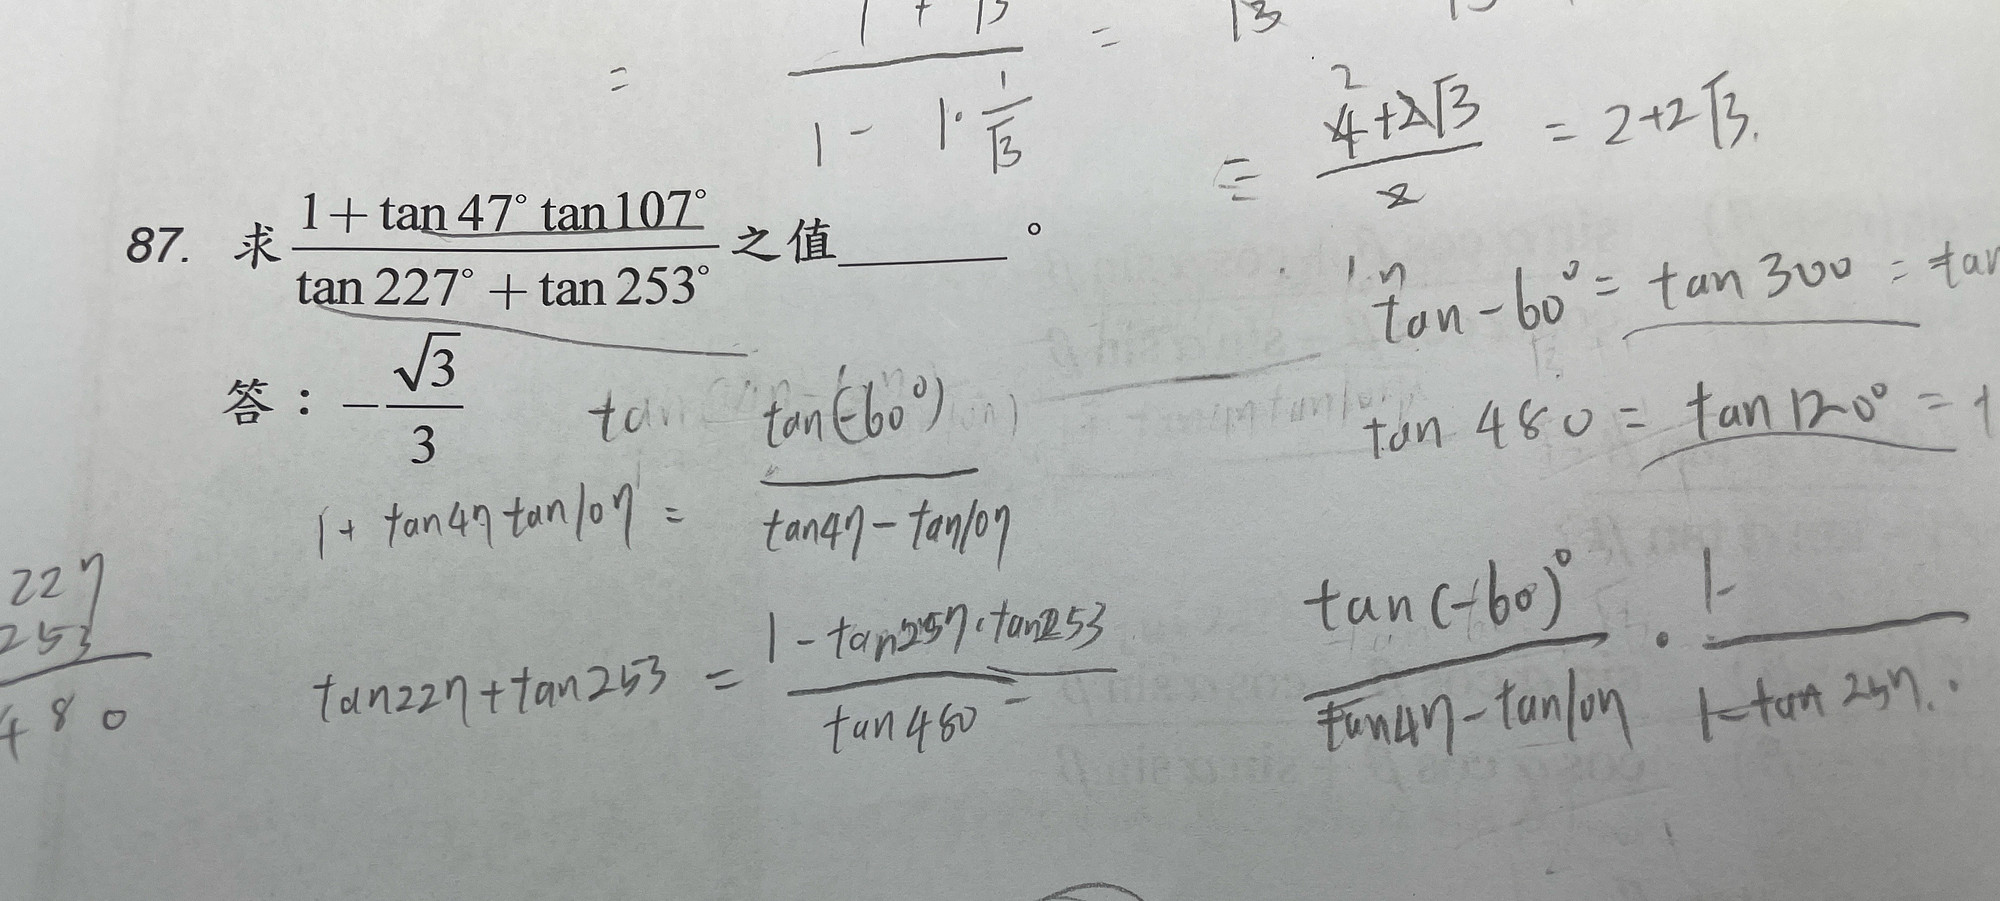 =
1 - 1 · 1/√3
=
= (4+2√3)/2 = 2+2√3.
2
87. 求 (1+tan 47° tan 107°)/(tan 227° + tan 253°) 之值______。
tan -60° = tan 300 = tan
答：-√3/3
tan(-60°)
tan 480 = tan 120° =
1 + tan47 tan107 = tan(-60°)/(tan47 - tan107)
227
253
480
tan227 + tan253 = (1 - tan257 · tan253)/tan480
tan(-60)°/(tan47 - tan107) · (1-)/(1-tan 257.)